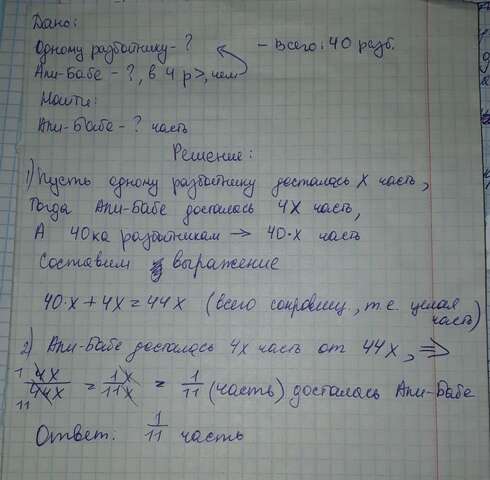 Дано:
Одному разбойнику - ? - Всего: 40 разб.
Али-Бабе - ?, в 4 р >, чем
Найти:
Али-Бабе - ? часть
Решение:
1) Пусть одному разбойнику досталась x часть,
Тогда Али-Бабе досталась 4x часть,
А 40ка разбойникам → 40·x часть
Составим выражение
40·x + 4x = 44x (всего сокровищ, т.е. целая часть)
2) Али-Бабе досталась 4x часть от 44x, ⇒
1 4x / 44x 11 = 1x / 11x = 1/11 (часть) досталась Али-Бабе
Ответ: 1/11 часть